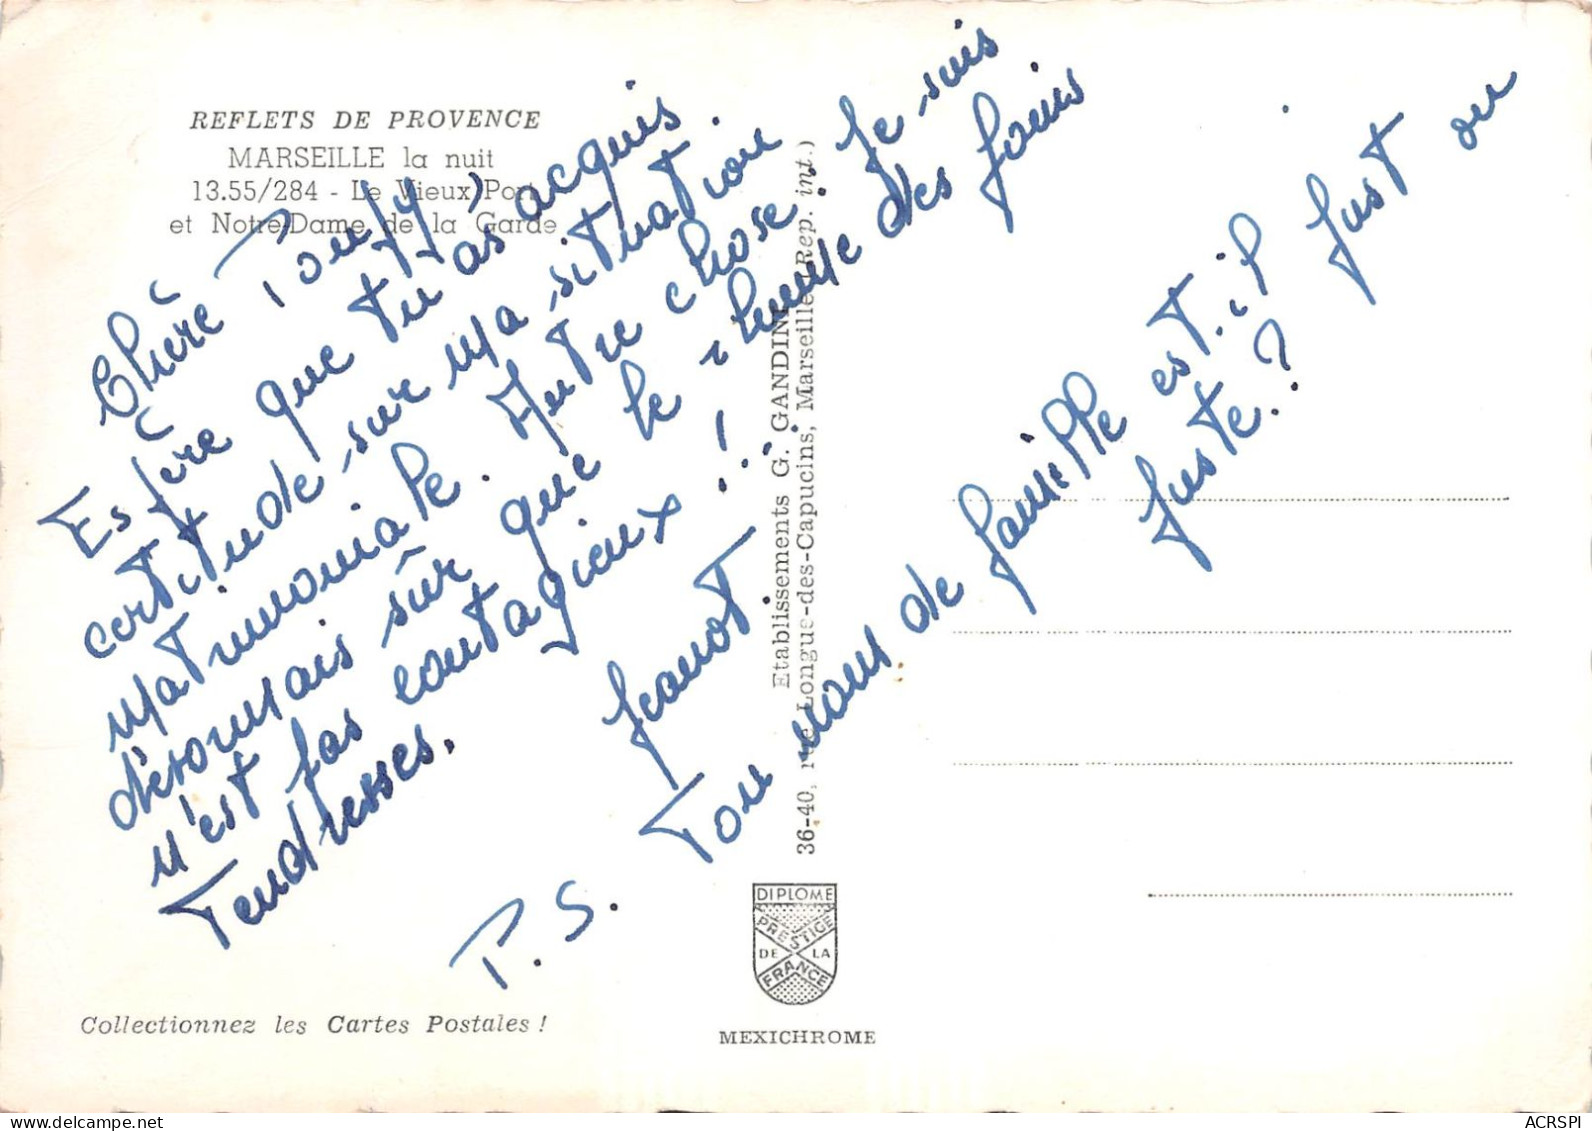 REFLETS DE PROVENCE
MARSEILLE la nuit
13.55/284 - Le Vieux Port
et Notre-Dame de la Garde
Chère Poufy,
Espère que tu as acquis
certitude sur ma situation
matrimoniale. Autre chose : Je suis
désormais sûr que le rhume des foins
n'est pas contagieux !....
Tendresses.
Jeanot.
P.S. Ton nom de famille est-il Just ou
Juste ?
Etablissements G. GANDINI
36-40, rue Longue-des-Capucins, Marseille (Rep. int.)
DIPLOME
PRESTIGE
DE LA
FRANCE
MEXICHROME
Collectionnez les Cartes Postales !
ACRSPI